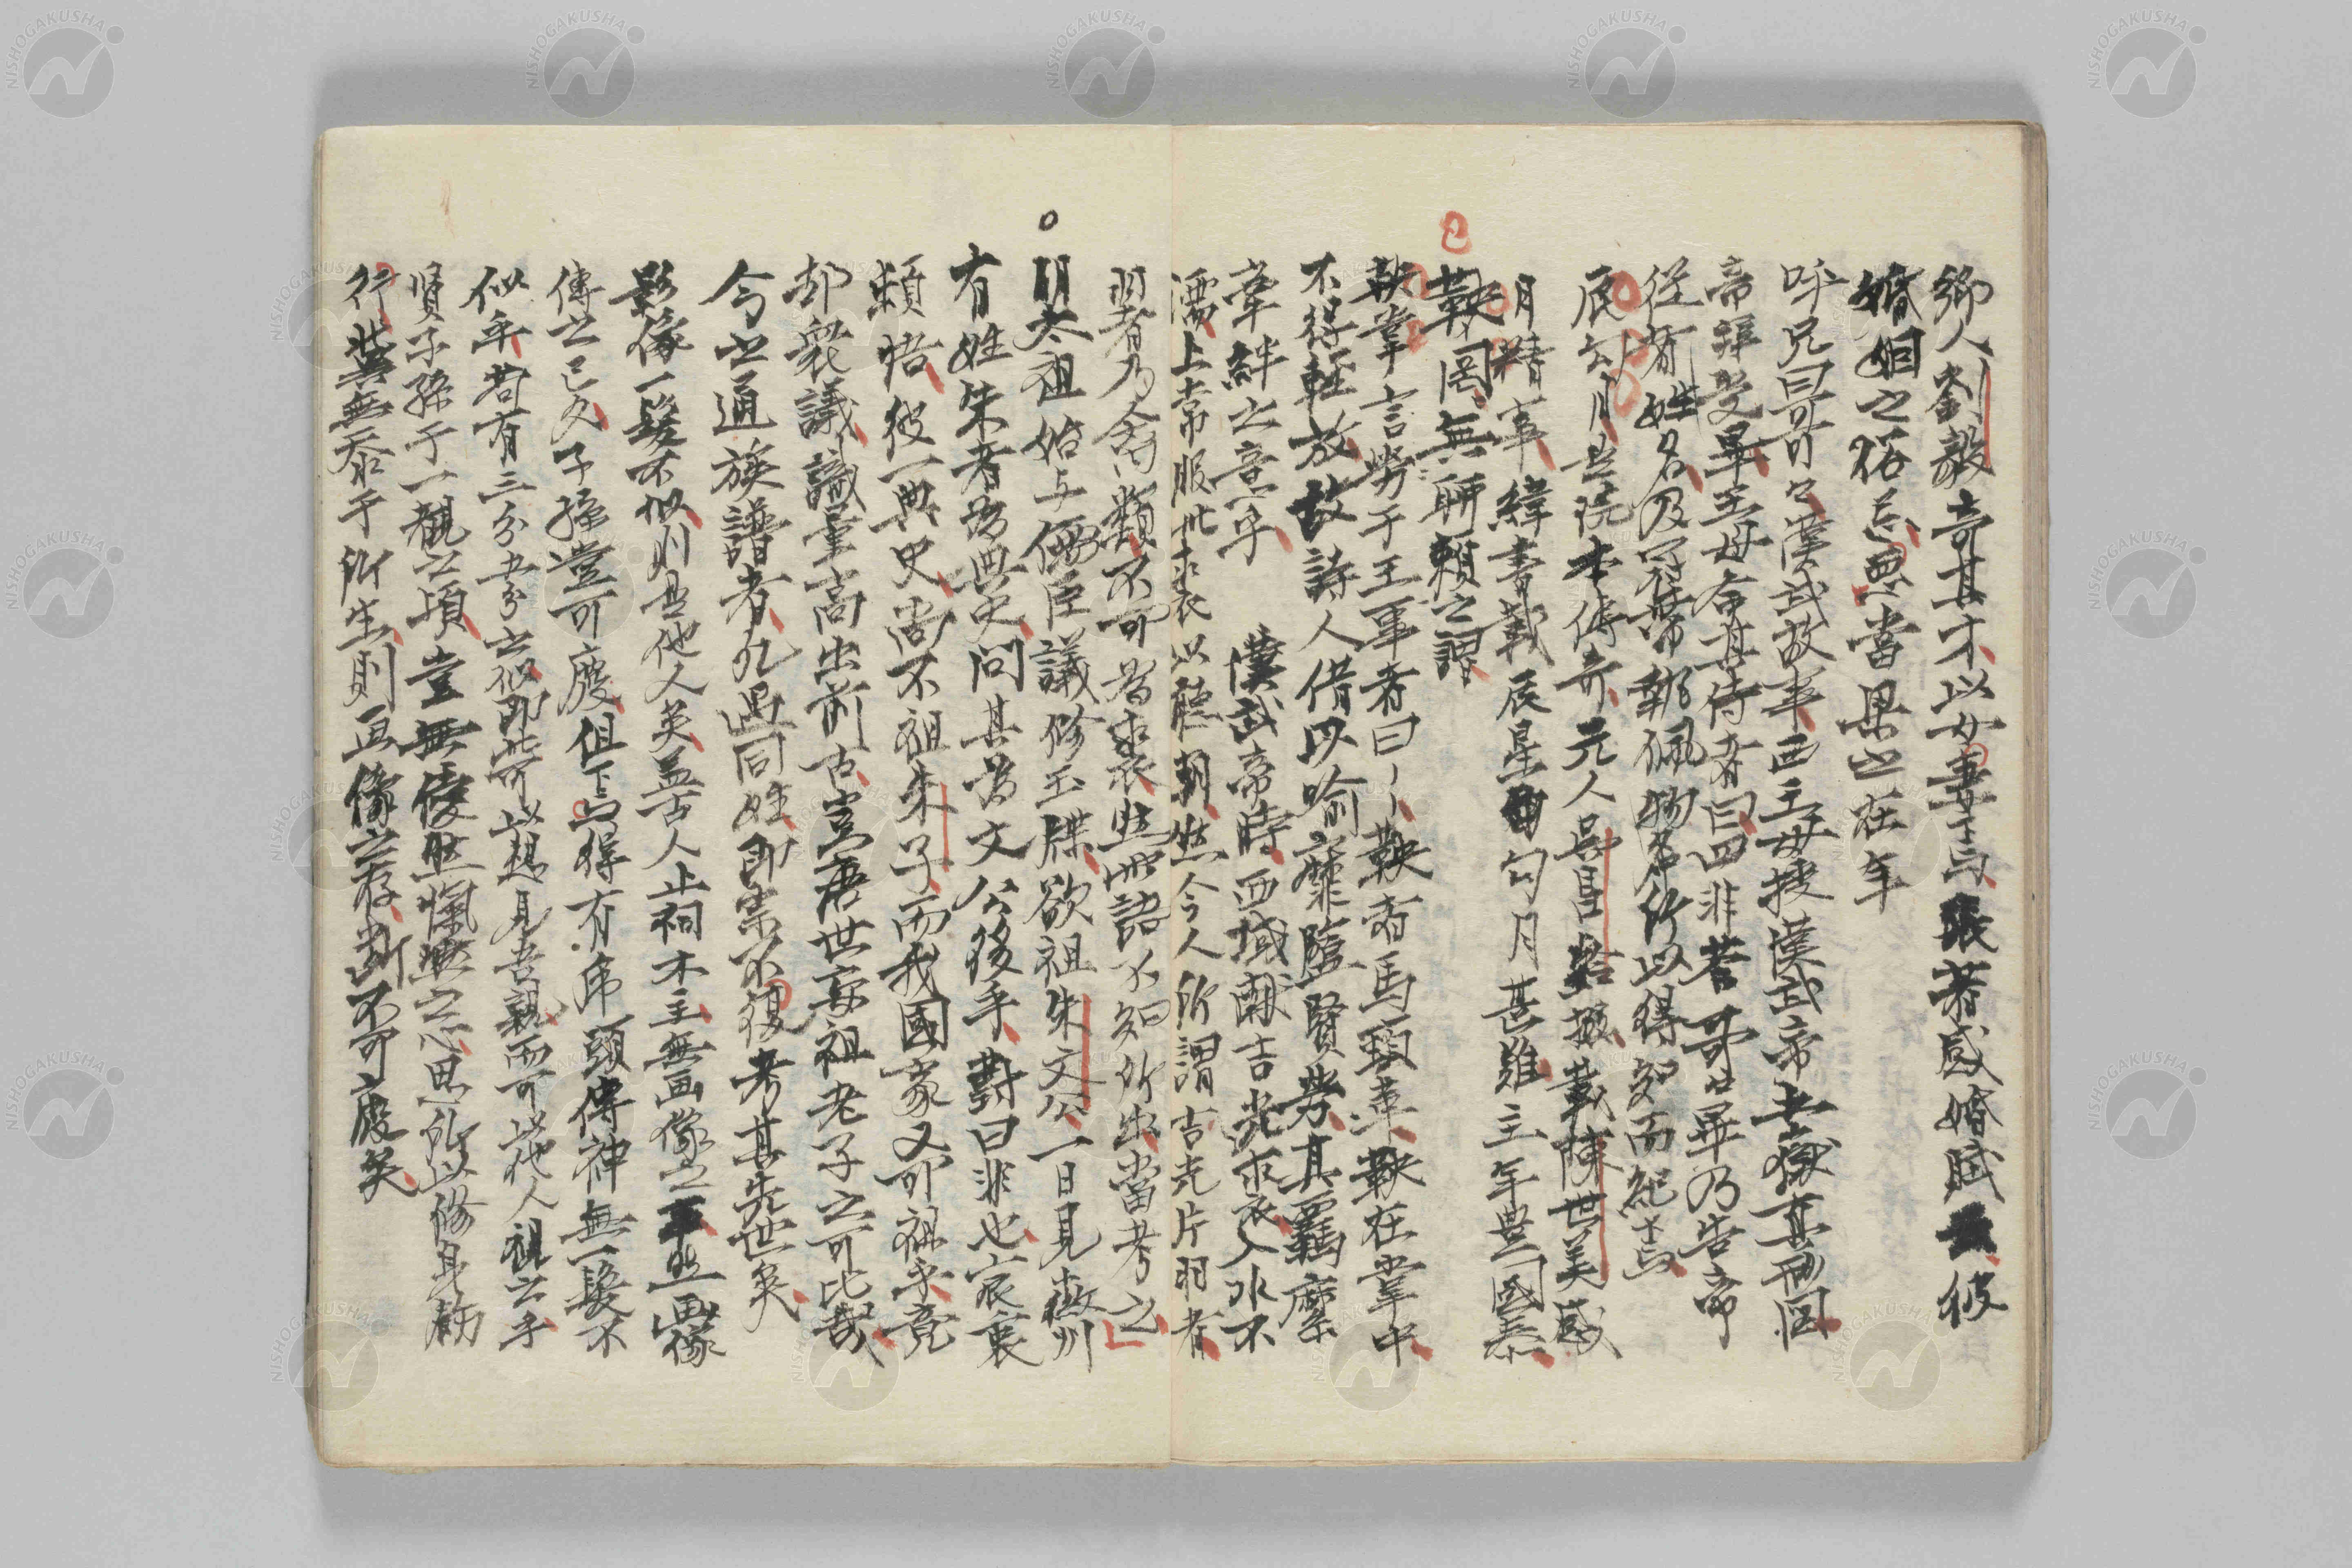 鄉人劉毅奇其才以女妻之張著感婚賦
婚姻之俗忌惡當梁之在年
呼兄曰哥漢武故事西王母授漢武帝五嶽真形圖
帝拜受畢王母命其侍者曰四非荅哥畢乃告帝
從者姓名及冠帶執佩物名所以得知而紀
辰勾月是院本傳奇元人吳昌齡撰載陳世美感
月精事緯書載辰星曰勾月甚難主年豊國泰
鞅罔無聊賴之謂
鞅掌言勞于王事者曰鞅者馬鞅在掌中
不得輕放故詩人借以喻靡鹽賢勞其羈縻
韋絆之意乎 漢武帝時西域獻吉光求衣入水不
濡上常服此裘衣以聽朝然今人所謂吉光片羽者
羽者乃禽類不可為裘衣然此語不知所出當考之
明太祖始与儒臣議修玉牒欲祖朱文公一日見徽州
有姓朱者為典史問其為文公後乎對曰非也宸衷
頼悟彼一典史尚不祖朱子而我國家又可祖乎竟
却衆議識量高出前古豈唐世妄祖老子之可比哉
今之通族譜者凡遇同姓即宗不復考其先世矣
影像一髪不似則是他人矣盖古人止祠木主無画像之事然画像
傳之已久子孫豈可廢但下得有席頭傳神無一髪不
似乎若有三分五分之似即此可以想見吾親而可以他人祖之乎
賢子孫于一觀之頃豈無僾然愾然之心思所以修身勵
行冀無忝于所生則画像之存斷不可廢矣